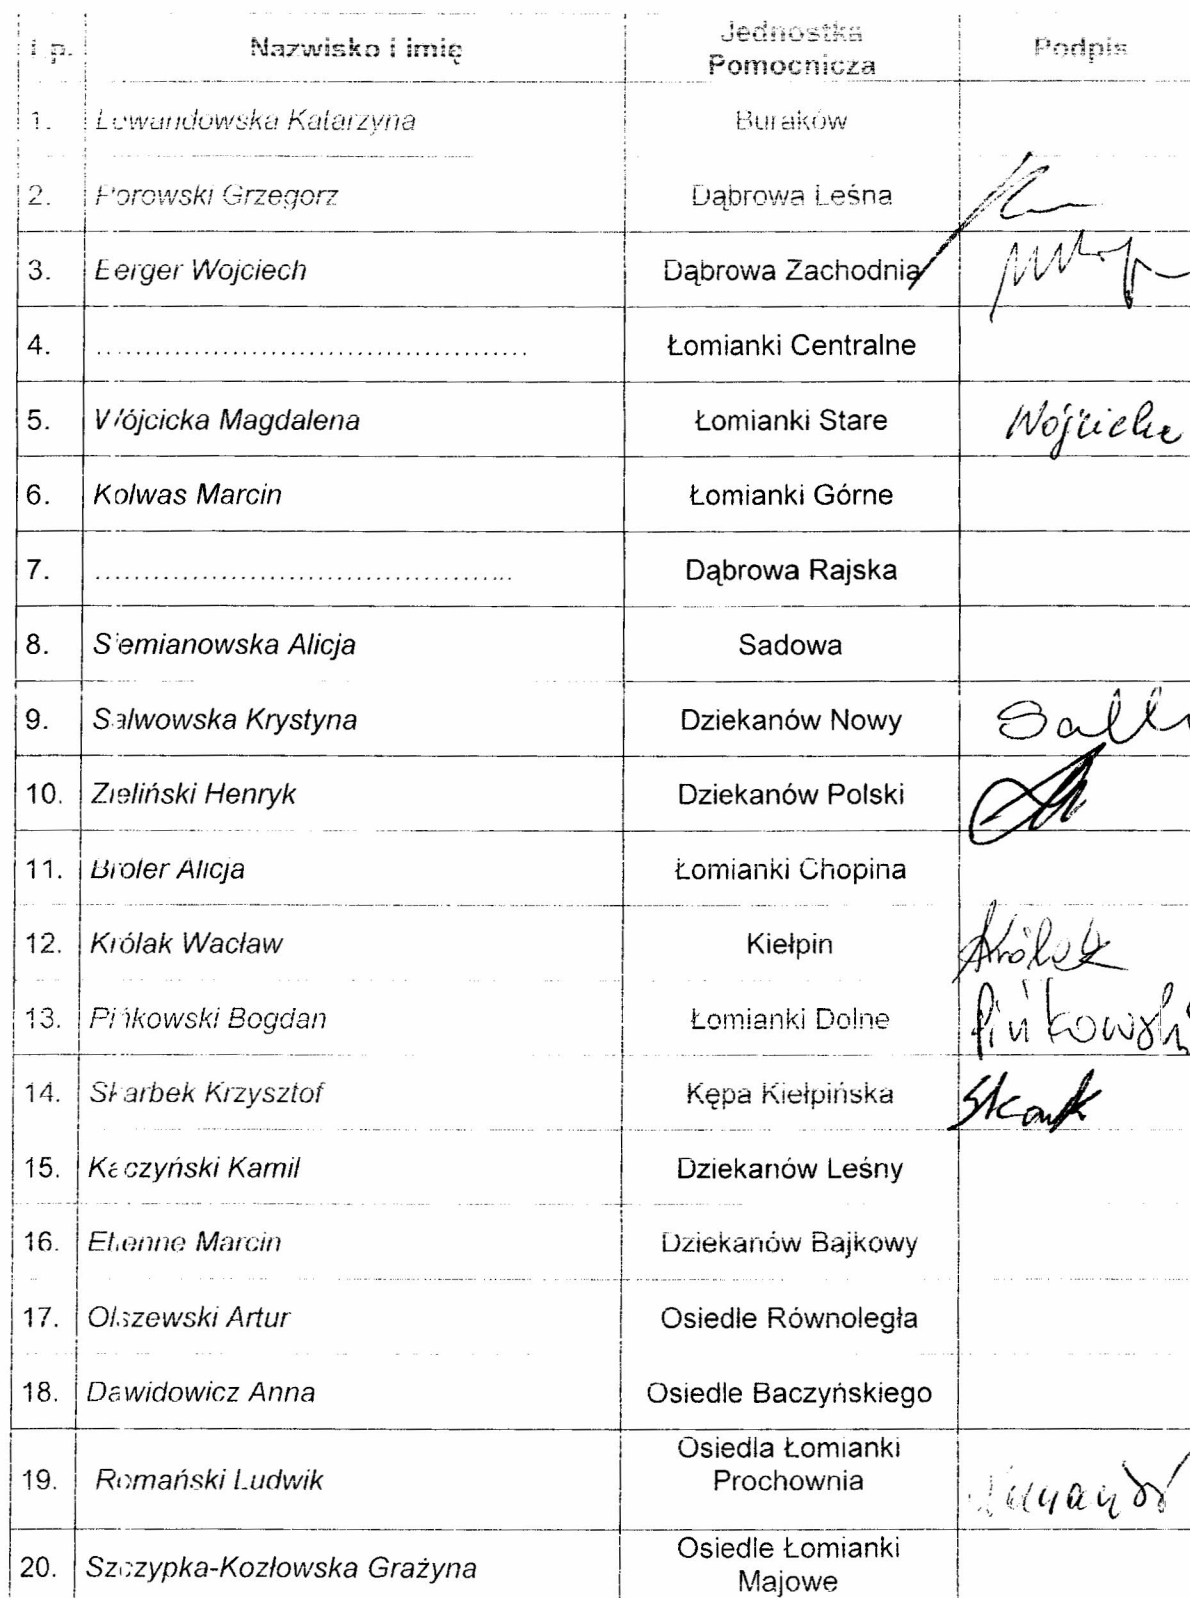 Lp. Nazwisko i imię Jednostka Pomocnicza Podpis
1. Lewandowska Katarzyna Buraków
2. Porowski Grzegorz Dąbrowa Leśna
3. Berger Wojciech Dąbrowa Zachodnia
4. ............................................ Łomianki Centralne
5. Wójcicka Magdalena Łomianki Stare Wójcicka
6. Kolwas Marcin Łomianki Górne
7. ........................................... Dąbrowa Rajska
8. Siemianowska Alicja Sadowa
9. Salwowska Krystyna Dziekanów Nowy
10. Zieliński Henryk Dziekanów Polski
11. Broler Alicja Łomianki Chopina
12. Królak Wacław Kiełpin Królak
13. Pińkowski Bogdan Łomianki Dolne Pińkowski
14. Skarbek Krzysztof Kępa Kiełpińska
15. Kaczyński Kamil Dziekanów Leśny
16. Etienne Marcin Dziekanów Bajkowy
17. Olszewski Artur Osiedle Równoległa
18. Dawidowicz Anna Osiedle Baczyńskiego
19. Romański Ludwik Osiedla Łomianki Prochownia
20. Szczypka-Kozłowska Grażyna Osiedle Łomianki Majowe